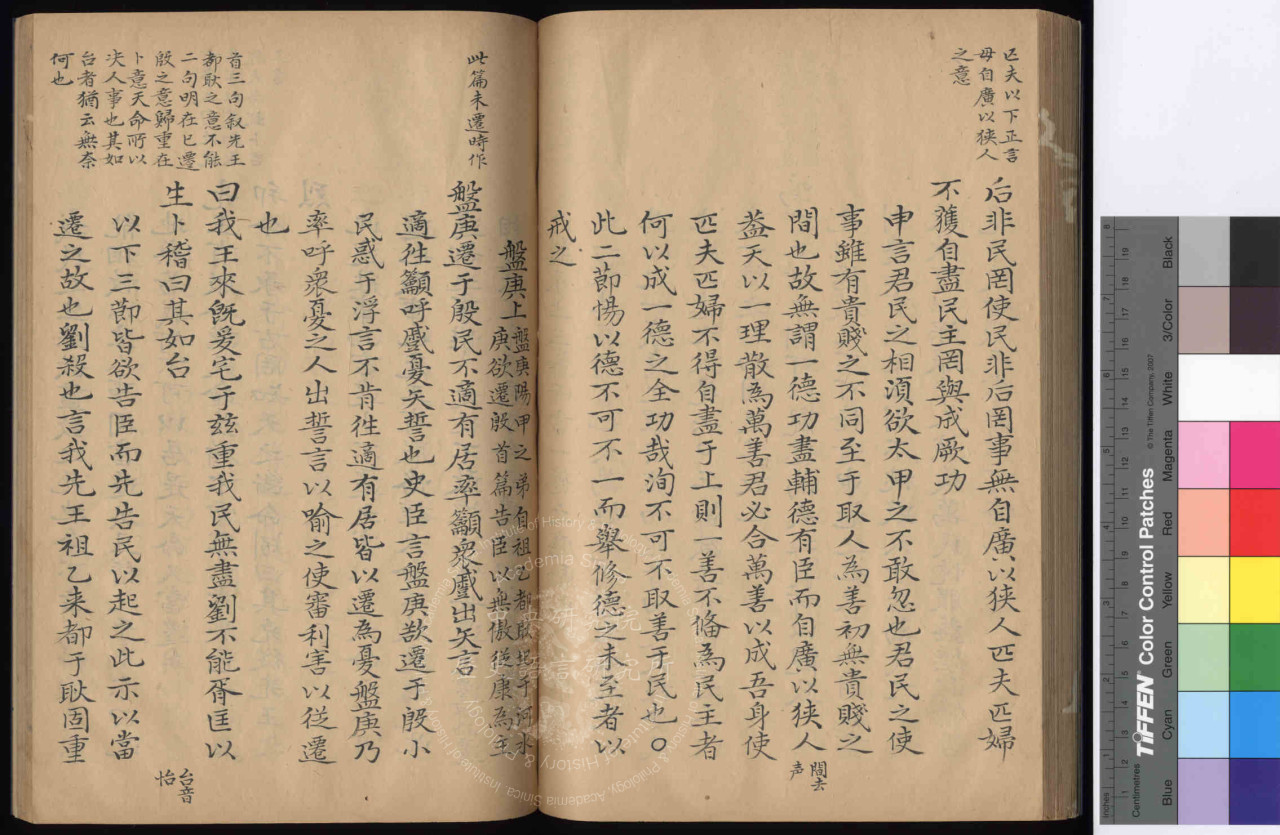 匹夫以下正言
毋自廣以狹人
之意
后非民罔使民非后罔事無自廣以狹人匹夫匹婦
不獲自盡民主罔與成厥功
申言君民之相須欲太甲之不敢忽也君民之使
事雖有貴賤之不同至于取人為善初無貴賤之
間也故無謂一德功盡輔德有臣而自廣以狹人
間去
声
蓋天以一理散為萬善君必合萬善以成吾身使
匹夫匹婦不得自盡于上則一善不俻為民主者
何以成一德之全功哉洵不可不取善于民也〇
此二節惕以德不可不一而舉修德之未至者以
戒之
盤庚上
盤庚陽甲之弟自祖乙都耿圮于河水
庚欲遷殷首篇告臣以無傲從康為主
此篇未遷時作
盤庚遷于殷民不適有居率籲衆慼出矢言
適往籲呼慼憂矢誓也史臣言盤庚欲遷于殷小
民惑于浮言不肯往適有居皆以遷為憂盤庚乃
率呼衆憂之人出誓言以喻之使審利害以從遷
也
首三句叙先王
都耿之意不能
二句明在已遷
殷之意歸重在
卜意天命所以
决人事也其如
台者猶云無奈
何也
曰我王來既爰宅于兹重我民無盡劉不能胥匡以
生卜稽曰其如台
台音
怡
以下三節皆欲告臣而先告民以起之此示以當
遷之故也劉殺也言我先王祖乙来都于耿固重
Inches
Centimetres
TIFFEN Color Control Patches
© The Tiffen Company, 2007
Blue
Cyan
Green
Yellow
Red
Magenta
White
3/Color
Black